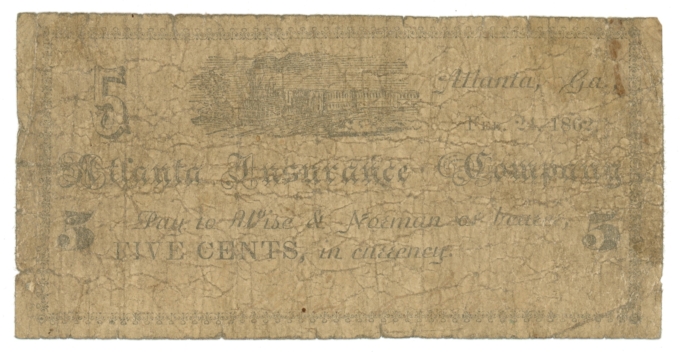 5 Atlanta, Ga.
Feb. 24, 1862
Atlanta Insurance Company
5 Pay to Wise & Norman or bearer, 5
FIVE CENTS, in currency.